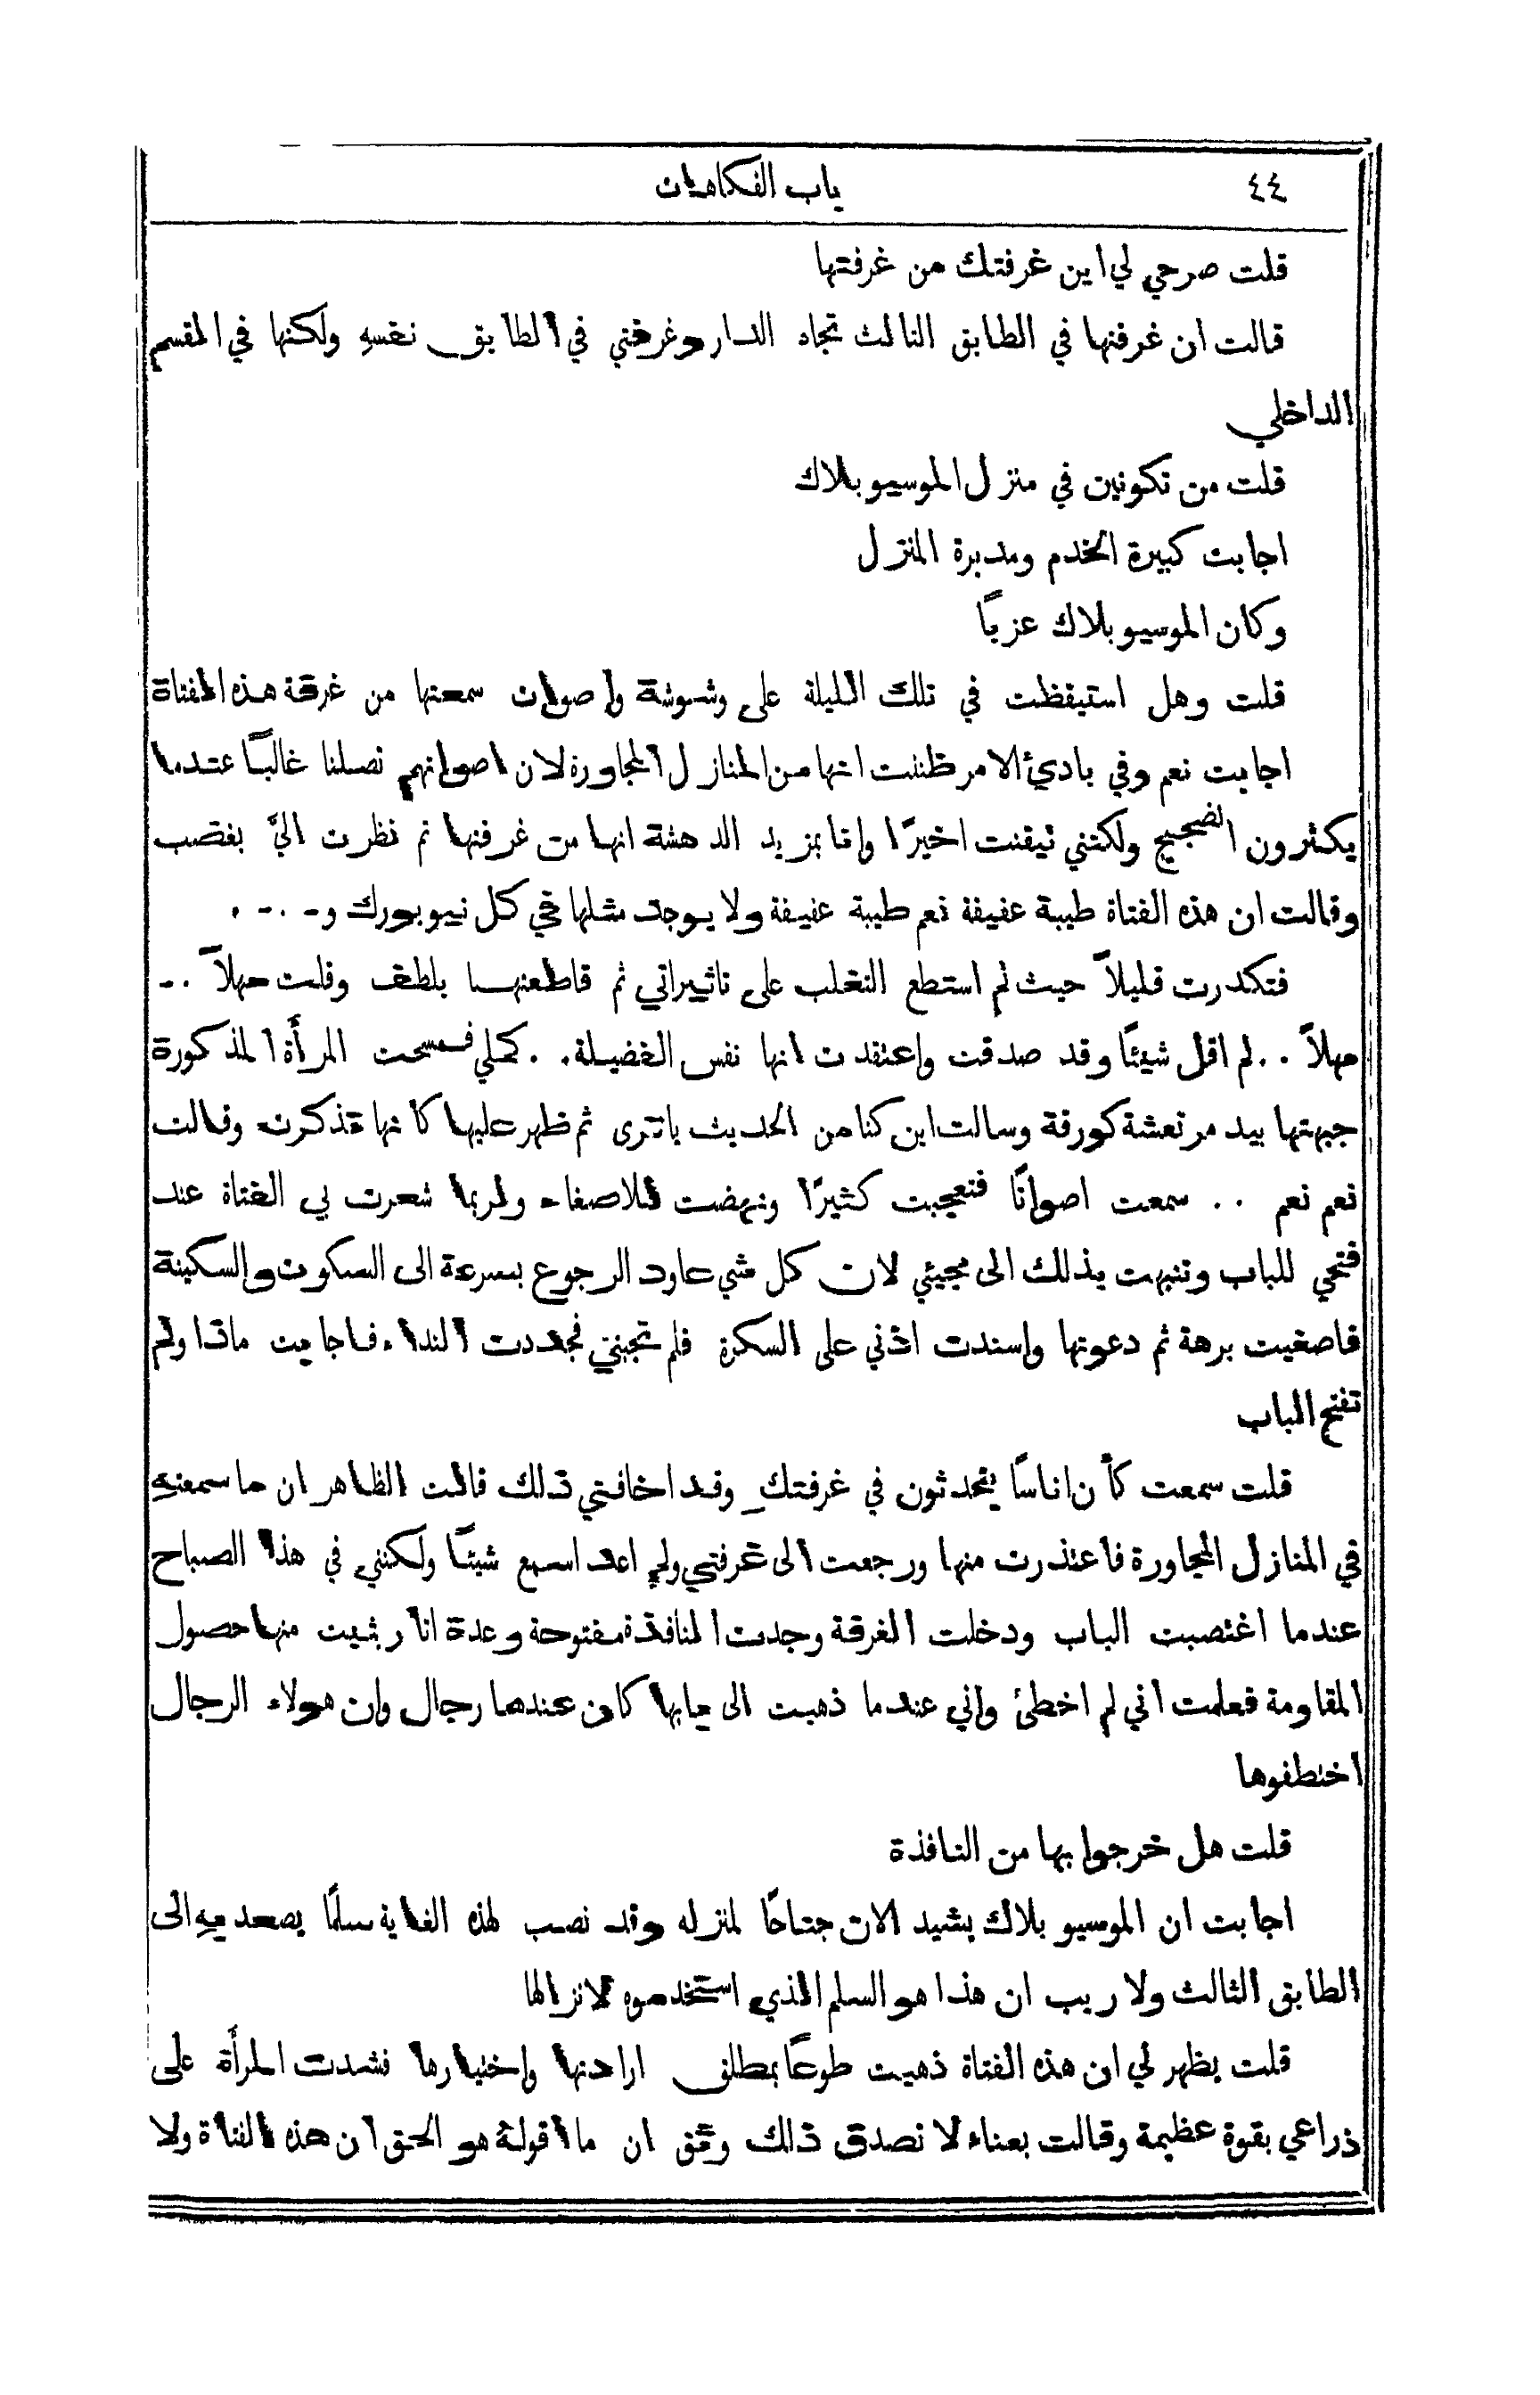 ٤٤
باب الفكاهات
قلت صرحي لي اين غرفتك من غرفتها
قالت ان غرفتها في الطابق الثالث تجاه الدار وغرفتي في الطابق نفسهِ ولكنها في المقسم
الداخلي
قلت من تكونين في منزل الموسيو بلاك
اجابت كبيرة الخدم ومدبرة المنزل
وكان الموسيو بلاك عزبًا
قلت وهل استيقظت في تلك الليلة على وشوشة واصوات سمعتها من غرفة هذه الفتاة
اجابت نعم وفي بادئ الامر ظننت انها من المنازل المجاورة لان اصواتهم تصلنا غالبًا عندما
يكثرون الضجيج ولكنني تيقنت اخيرًا وانا بمزيد الدهشة انها من غرفتها ثم نظرت اليَّ بغضب
وقالت ان هذه الفتاة طيبة عفيفة نعم طيبة عفيفة ولا يوجد مثلها في كل نيويورك و . . .
فتكدرت قليلاً حيث لم استطع التغلب على تاثيراتي ثم قاطعتها بلطف وقلت مهلاً . .
مهلاً . . لم اقل شيئًا وقد صدقت واعتقدت انها نفس الفضيلة . . كملي فمسحت المرأة المذكورة
جبهتها بيد مرتعشة كورقة وسالت اين كنا من الحديث يا ترى ثم ظهر عليها كانها تذكرت وقالت
نعم نعم . . سمعت اصواتًا فتعجبت كثيرًا ونهضت للاصغاء ولربما شعرت بي الفتاة عند
فتحي للباب وتنبهت بذلك الى مجيئي لان كل شي عاود الرجوع بسرعة الى السكوت والسكينة
فاصغيت برهة ثم دعوتها واسندت اذني على السكرة فلم تجبني فجددت النداء فاجابت ماذا ولم
تفتح الباب
قلت سمعت كأن اناسًا يتحدثون في غرفتكِ وقد اخافني ذلك قالت الظاهر ان ما سمعتهِ
في المنازل المجاورة فاعتذرت منها ورجعت الى غرفتي ولم اعد اسمع شيئًا ولكنني في هذا الصباح
عندما اغتصبت الباب ودخلت الغرفة وجدت النافذة مفتوحة وعدة اثار يثبت منها حصول
المقاومة فعلمت اني لم اخطئ واني عندما ذهبت الى بابها كان عندها رجال وان هولاء الرجال
اختطفوها
قلت هل خرجوا بها من النافذة
اجابت ان الموسيو بلاك يشيد الان جناحًا لمنزله وقد نصب لهذه الغاية سلمًا يصعد بهِ الى
الطابق الثالث ولا ريب ان هذا هو السلم الذي استخدموه لانزالها
قلت يظهر لي ان هذه الفتاة ذهبت طوعًا بمطلق ارادتها واختيارها فشدت المرأة على
ذراعي بقوة عظيمة وقالت بعناء لا تصدق ذلك وثق ان ما اقولهُ هو الحق ان هذه الفتاة ولا